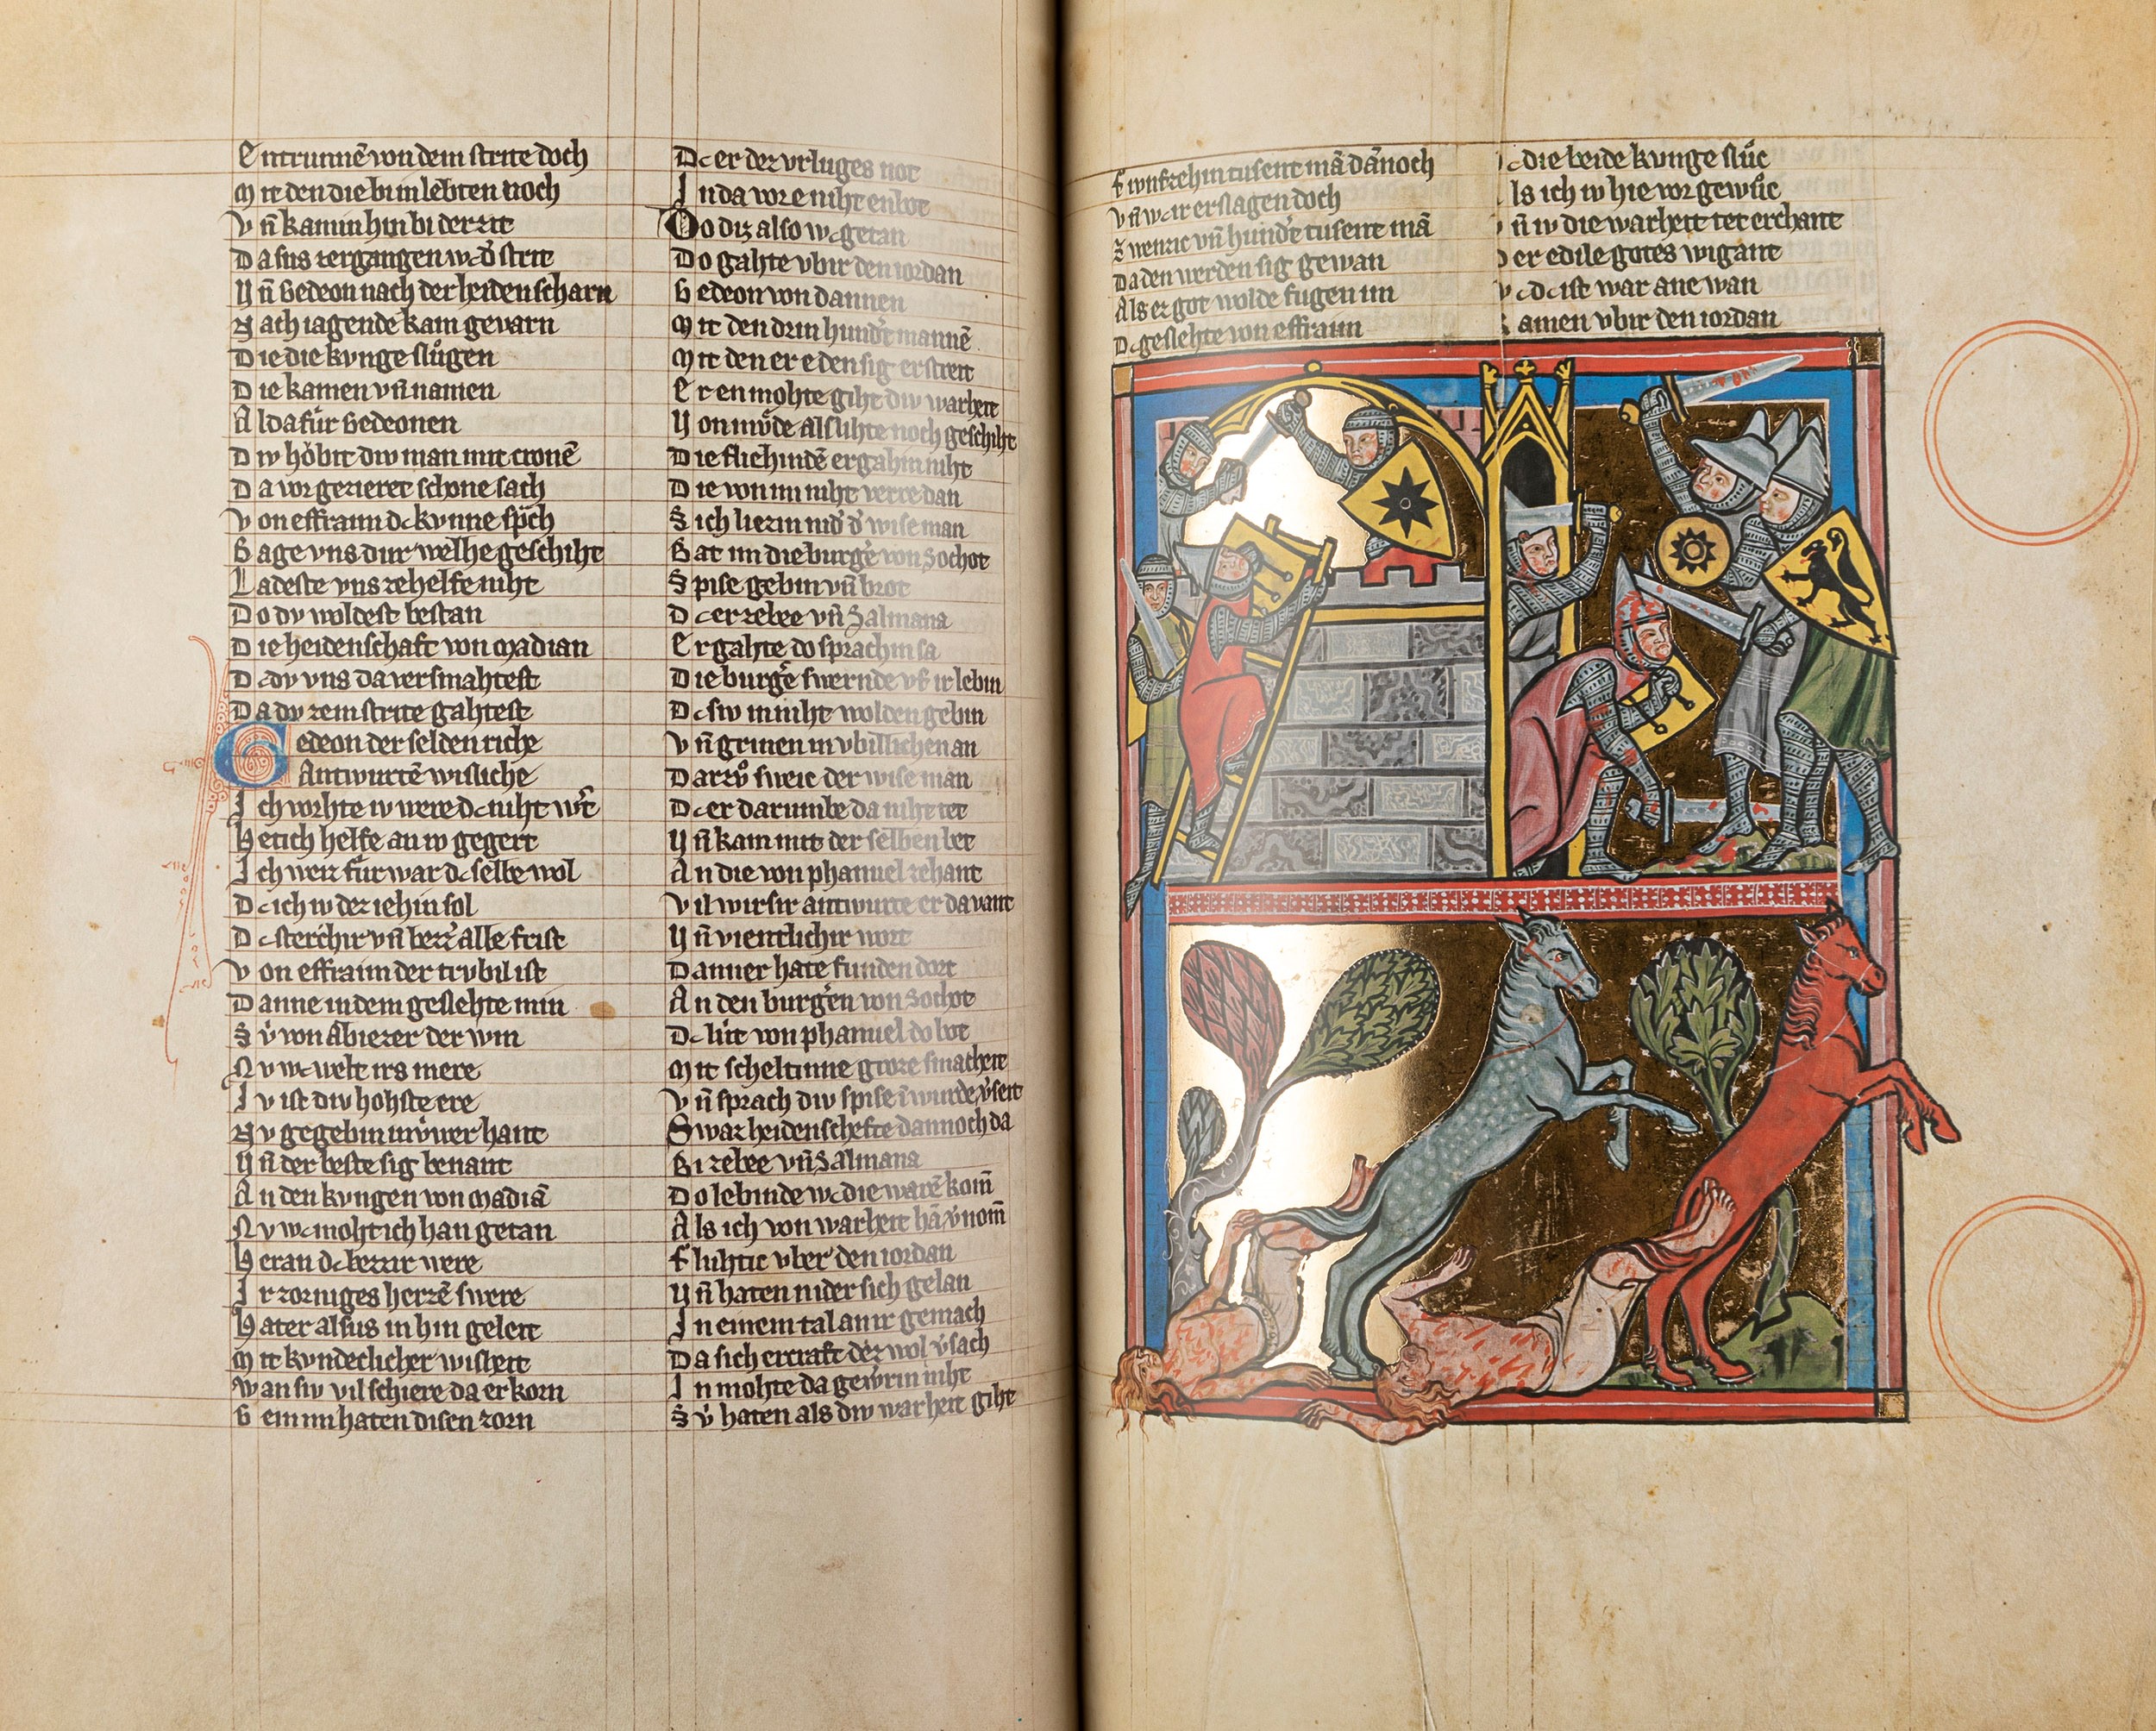 Entrunnē von dem strite doch
Mit den die bi im lebten noch
Vn̄ kamin hin bi der zit
Da sus zergangen wc d̓ strit
Vn̄ Gedeon nach der heiden scharn
Nach iagende kam gevarn
Die die kvnge slůgen
Die kamen vn̄ namen
Alda fúr Gedeonen
Div hǒbit div man mit cronē
Da vor gezieret schone sach
Von effraim dc kvnne sp̄ch
Sage vns dur welhe geschiht
Ladeste vns ze helfe niht
Do dv woldest bestan
Die heidenschaft von Madian
Dc dv vns da versmahtest
Da dv zem strite gahtest
Gedeon der selden riche
Antwurtē wisliche
Ich vorhte iv were dc niht w̓t
Het ich helfe an iv gegert
Ich weiz fúr war dc selbe wol
Dc ich iv der iehin sol
Dc sterch ir vn̄ bezz̓ alle frist
Von effraim der trvbil ist
Danne in dem geslehte min
Sv́ von Abiezer der win
Nv wc welt irs mere
Iv ist div hohste ere
Nv gegebin in v́wer hant
Vn̄ der beste sig benant
An den kvngen von Madiā
Nv wc moht ich han getan
Her an dc bezzir were
Ir zorniges herzē swere
Hat er alsus in hin geleit
Mit kvndeclicher wisheit
Wan siv vil schiere da erkorn
Gein im haten disen zorn
Dc er der vrluges not
In da vore niht enbot
Do diz also wc getan
Do gahte vbir den iordan
Gedeon von dannen
Mit den drin hund̓t mannē
Mit den er e den sig erstreit
Er en mohte giht div warheit
Von mv̊de als lihte noch geschiht
Die fliehindē ergahin niht
Die von im niht verre dan
Sich liezin nid̓ d̓ wise man
Bat im die burg̓e von Sochot
Spise gebin vn̄ brot
Dc er zebee vn̄ Salmana
Ergahte do sprachin sa
Die burg̓e swernde vf ir lebin
Dc siv in niht wolden gebin
Vn̄ grinen in vbillichen an
Darzv̊ sweic der wise man
Dc er darumbe da niht tet
Vn̄ kam mit der selben bet
An die von phanuel zehant
Vil wirsir antwurte er da vant
Vn̄ vientlichir wort
Danner hate funden dort
An den burg̓en von Sochot
Dc lút von phanuel do bot
Mit scheltinne groze smacheit
Vn̄ sprach div spise ī wurde v̓seit
Swaz heidenschefte dannoch da
Bi zebee vn̄ Salmana
Do lebinde wc die warē kom̄
Als ich von warheit hā v̓nom̄
Fluhtic vber den iordan
Vn̄ haten nider sich gelan
In einem tal an ir gemach
Da sich ir craft der wol v̓sach
In mohte da gew̓rin niht
Sv́ haten als div warheit giht
Fiunfzehin tusent mā dānoch
Vn̄ wc ir erslagen doch
Zwenzic vn̄ hund̓t tusent mā
Da den werden sig gewan
Als ez got wolde fugen im
Dc geslehte von effraim
dc die beide kvnge slůc
ls ich iv hie vor gewůc
n̄ iv die warheit tet erchant
er edile gotes wigant
dc ist war ane wan
amen vbir den iordan